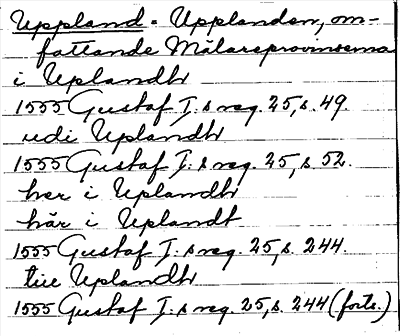 Uppland. Upplanden, om-
fattande Mälareprovinserna
i Uplandh
1555 Gustaf I:s reg. 25, s. 49.
udi Uplandh
1555 Gustaf I:s reg. 25, s. 52.
her i Uplandh
här i Uplandt
1555 Gustaf I:s reg. 25, s. 244.
tiie Uplandh
1555 Gustaf I:s reg. 25, s. 244 (forts.)